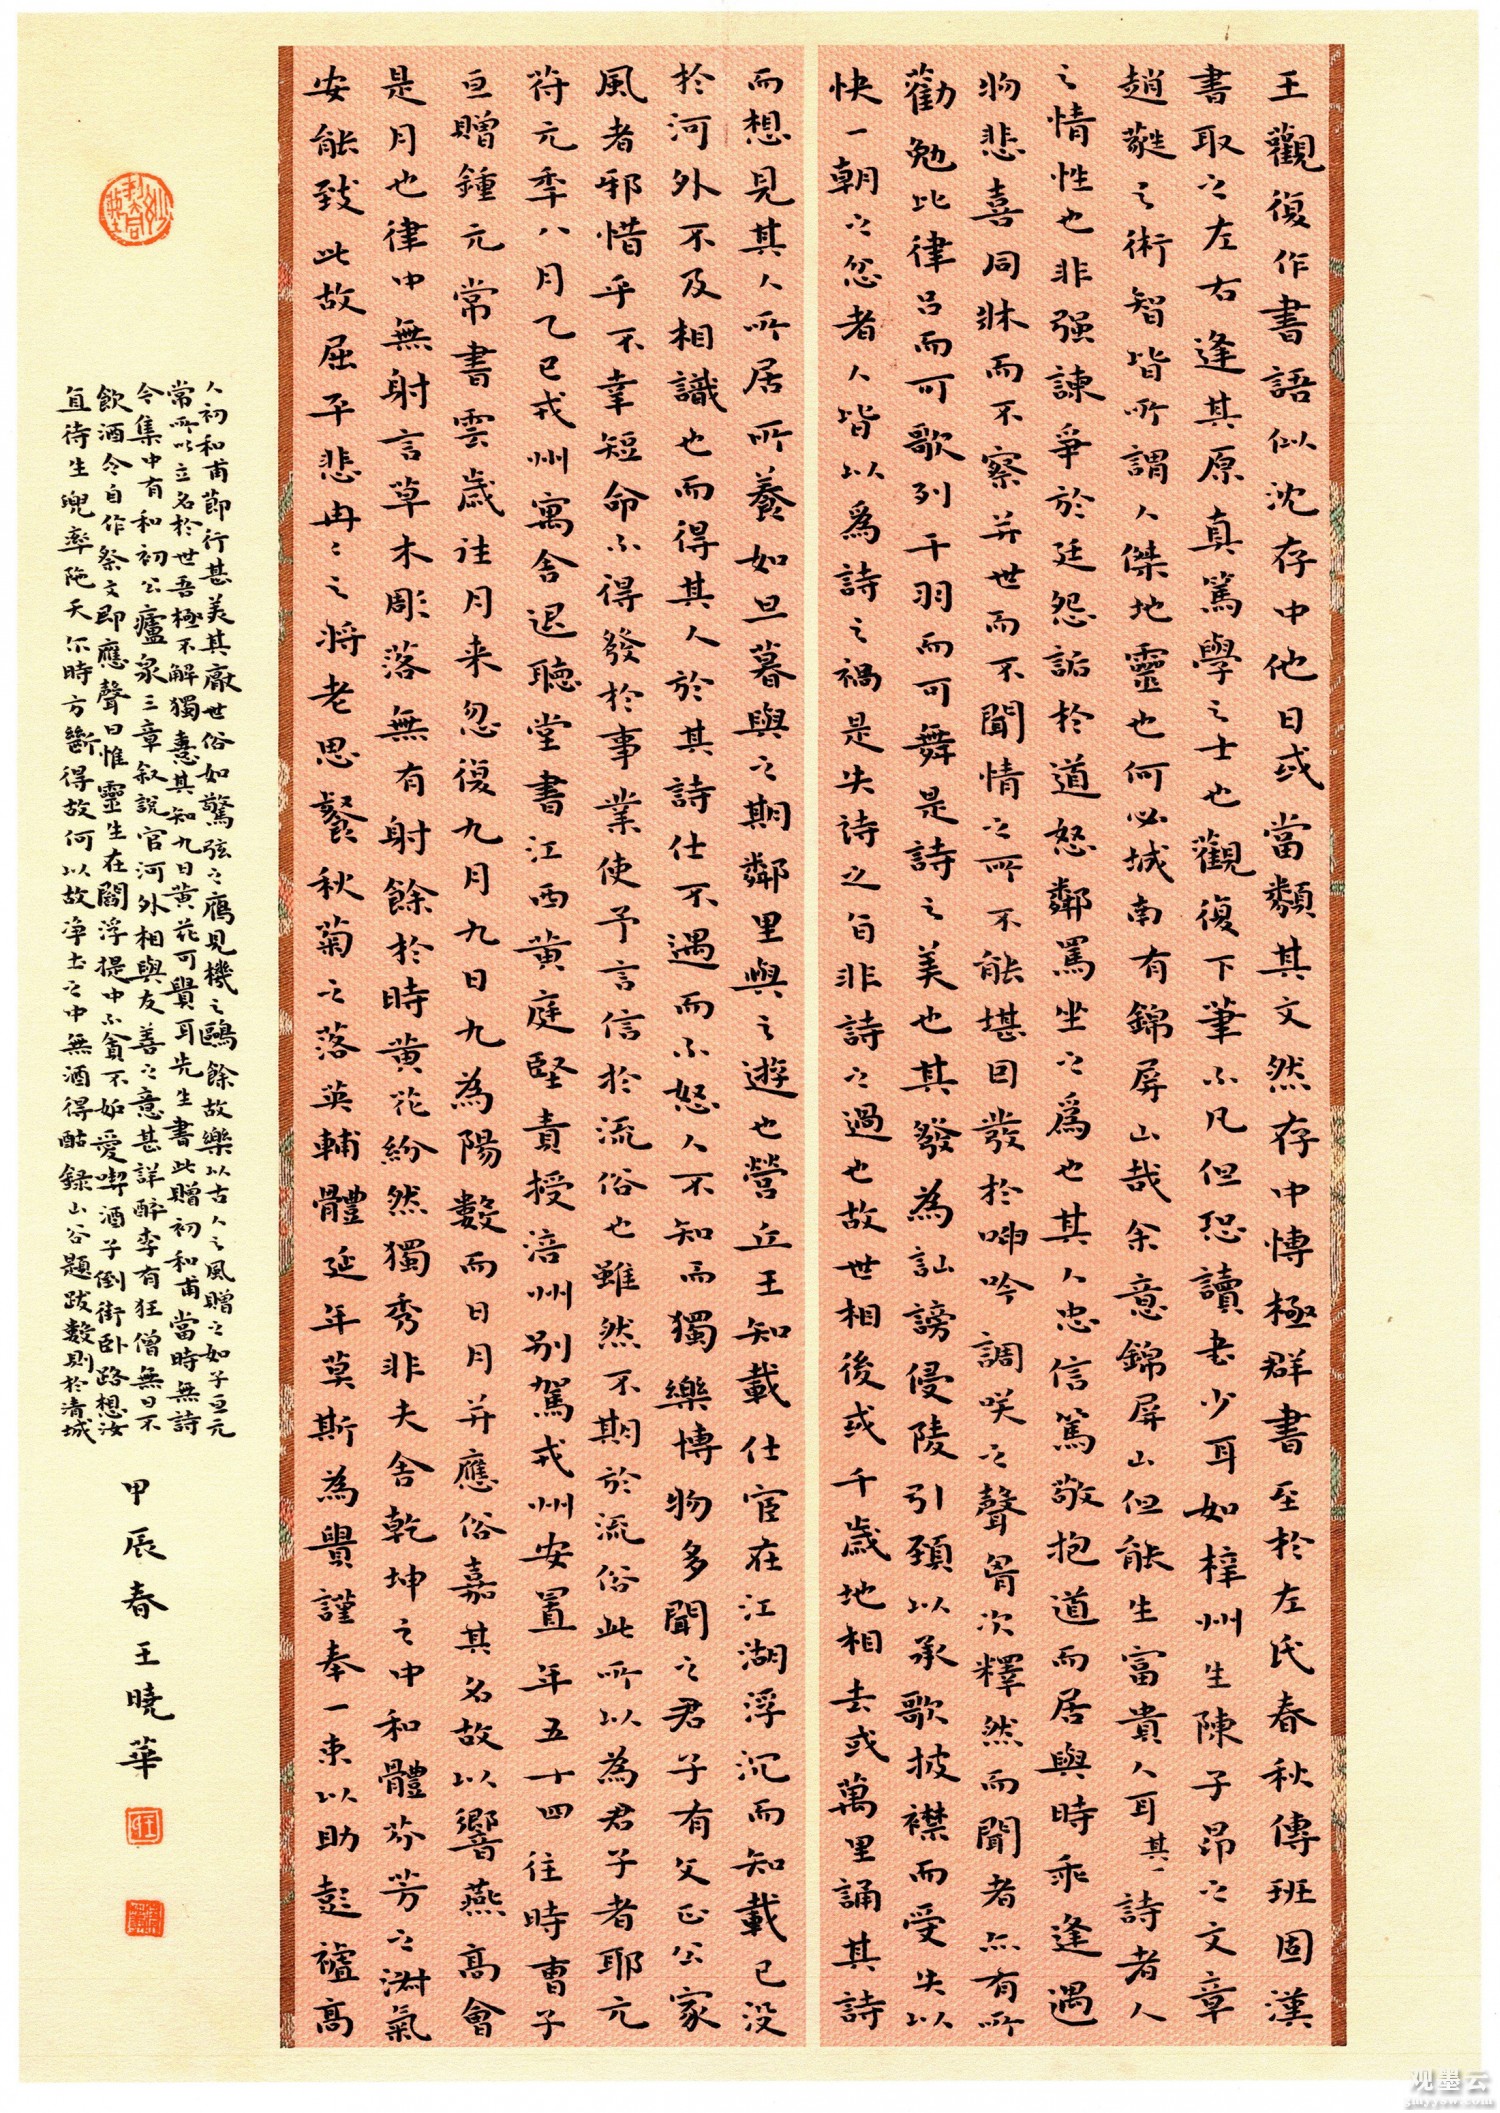 王觀復作書語似沈存中他日或當類其文然存中博極群書至於左氏春秋傳班固漢
書取之左右逢其原真篤學之士也觀復下筆不凡但恐讀書少耳如梓州生陳子昂之文章
趙蕤之術智皆所謂人傑地靈也何必城南有錦屏山哉余意錦屏山但能生富貴人耳其一詩者人
之情性也非强諫爭於廷怨詬於道怒鄰罵坐之爲也其人忠信篤敬抱道而居與時乖逢遇
物悲喜同牀而不察并世而不聞情之所不能堪因發於呻吟調笑之聲胷次釋然而聞者亦有所
勸勉比律吕而可歌列干羽而可舞是詩之美也其發為訕謗侵陵引頸以承戈披襟而受矢以
快一朝之忿者人皆以爲詩之禍是失詩之旨非詩之過也故世相後或千歲地相去或萬里誦其詩
而想見其人所居所養如旦暮與之期鄰里與之遊也營丘王知載仕宦在江湖浮沉而知載已没
於河外不及相識也而得其人於其詩仕不遇而不怒人不知而獨樂博物多聞之君子有父正公家
風者邪惜乎不幸短命不得發於事業使予言信於流俗也雖然不期於流俗此所以為君子者耶元
符元年八月乙巳戎州寓舍退聽堂書江西黄庭堅責授涪州別駕戎州安置年五十四往時曹子
亘贈鍾元常書雲歲往月来忽復九月九日九為陽數而日月并應俗嘉其名故以響燕高會
是月也律中無射言草木彫落無有射餘於時黄花紛然獨秀非夫含乾坤之中和體芬芳之淑氣
安能致此故屈平悲冉冉之將老思飱秋菊之落英輔體延年莫斯為貴謹奉一束以助彭袓高
人初和甫節行甚美其厰世俗如驚弦之鴈見機之鷗餘故樂以古人之風贈之如子亘元
常所以立名於世吾極不解獨憙其知九日黄花可貴耳先生書此贈初和甫當時無詩
今集中有和初公瀘泉三章叙說官河外相與友善之意甚詳醉李有狂僧無日不
飲酒令自作祭文即應聲曰惟靈生在閻浮提中不貪不妬愛喫酒子倒街卧路想汝
直待生兜率陁天尔時方斷得故何以故净土之中無酒得酤録山谷題跋數則於清城
甲辰春王曉華
观墨云
gmyyow.com